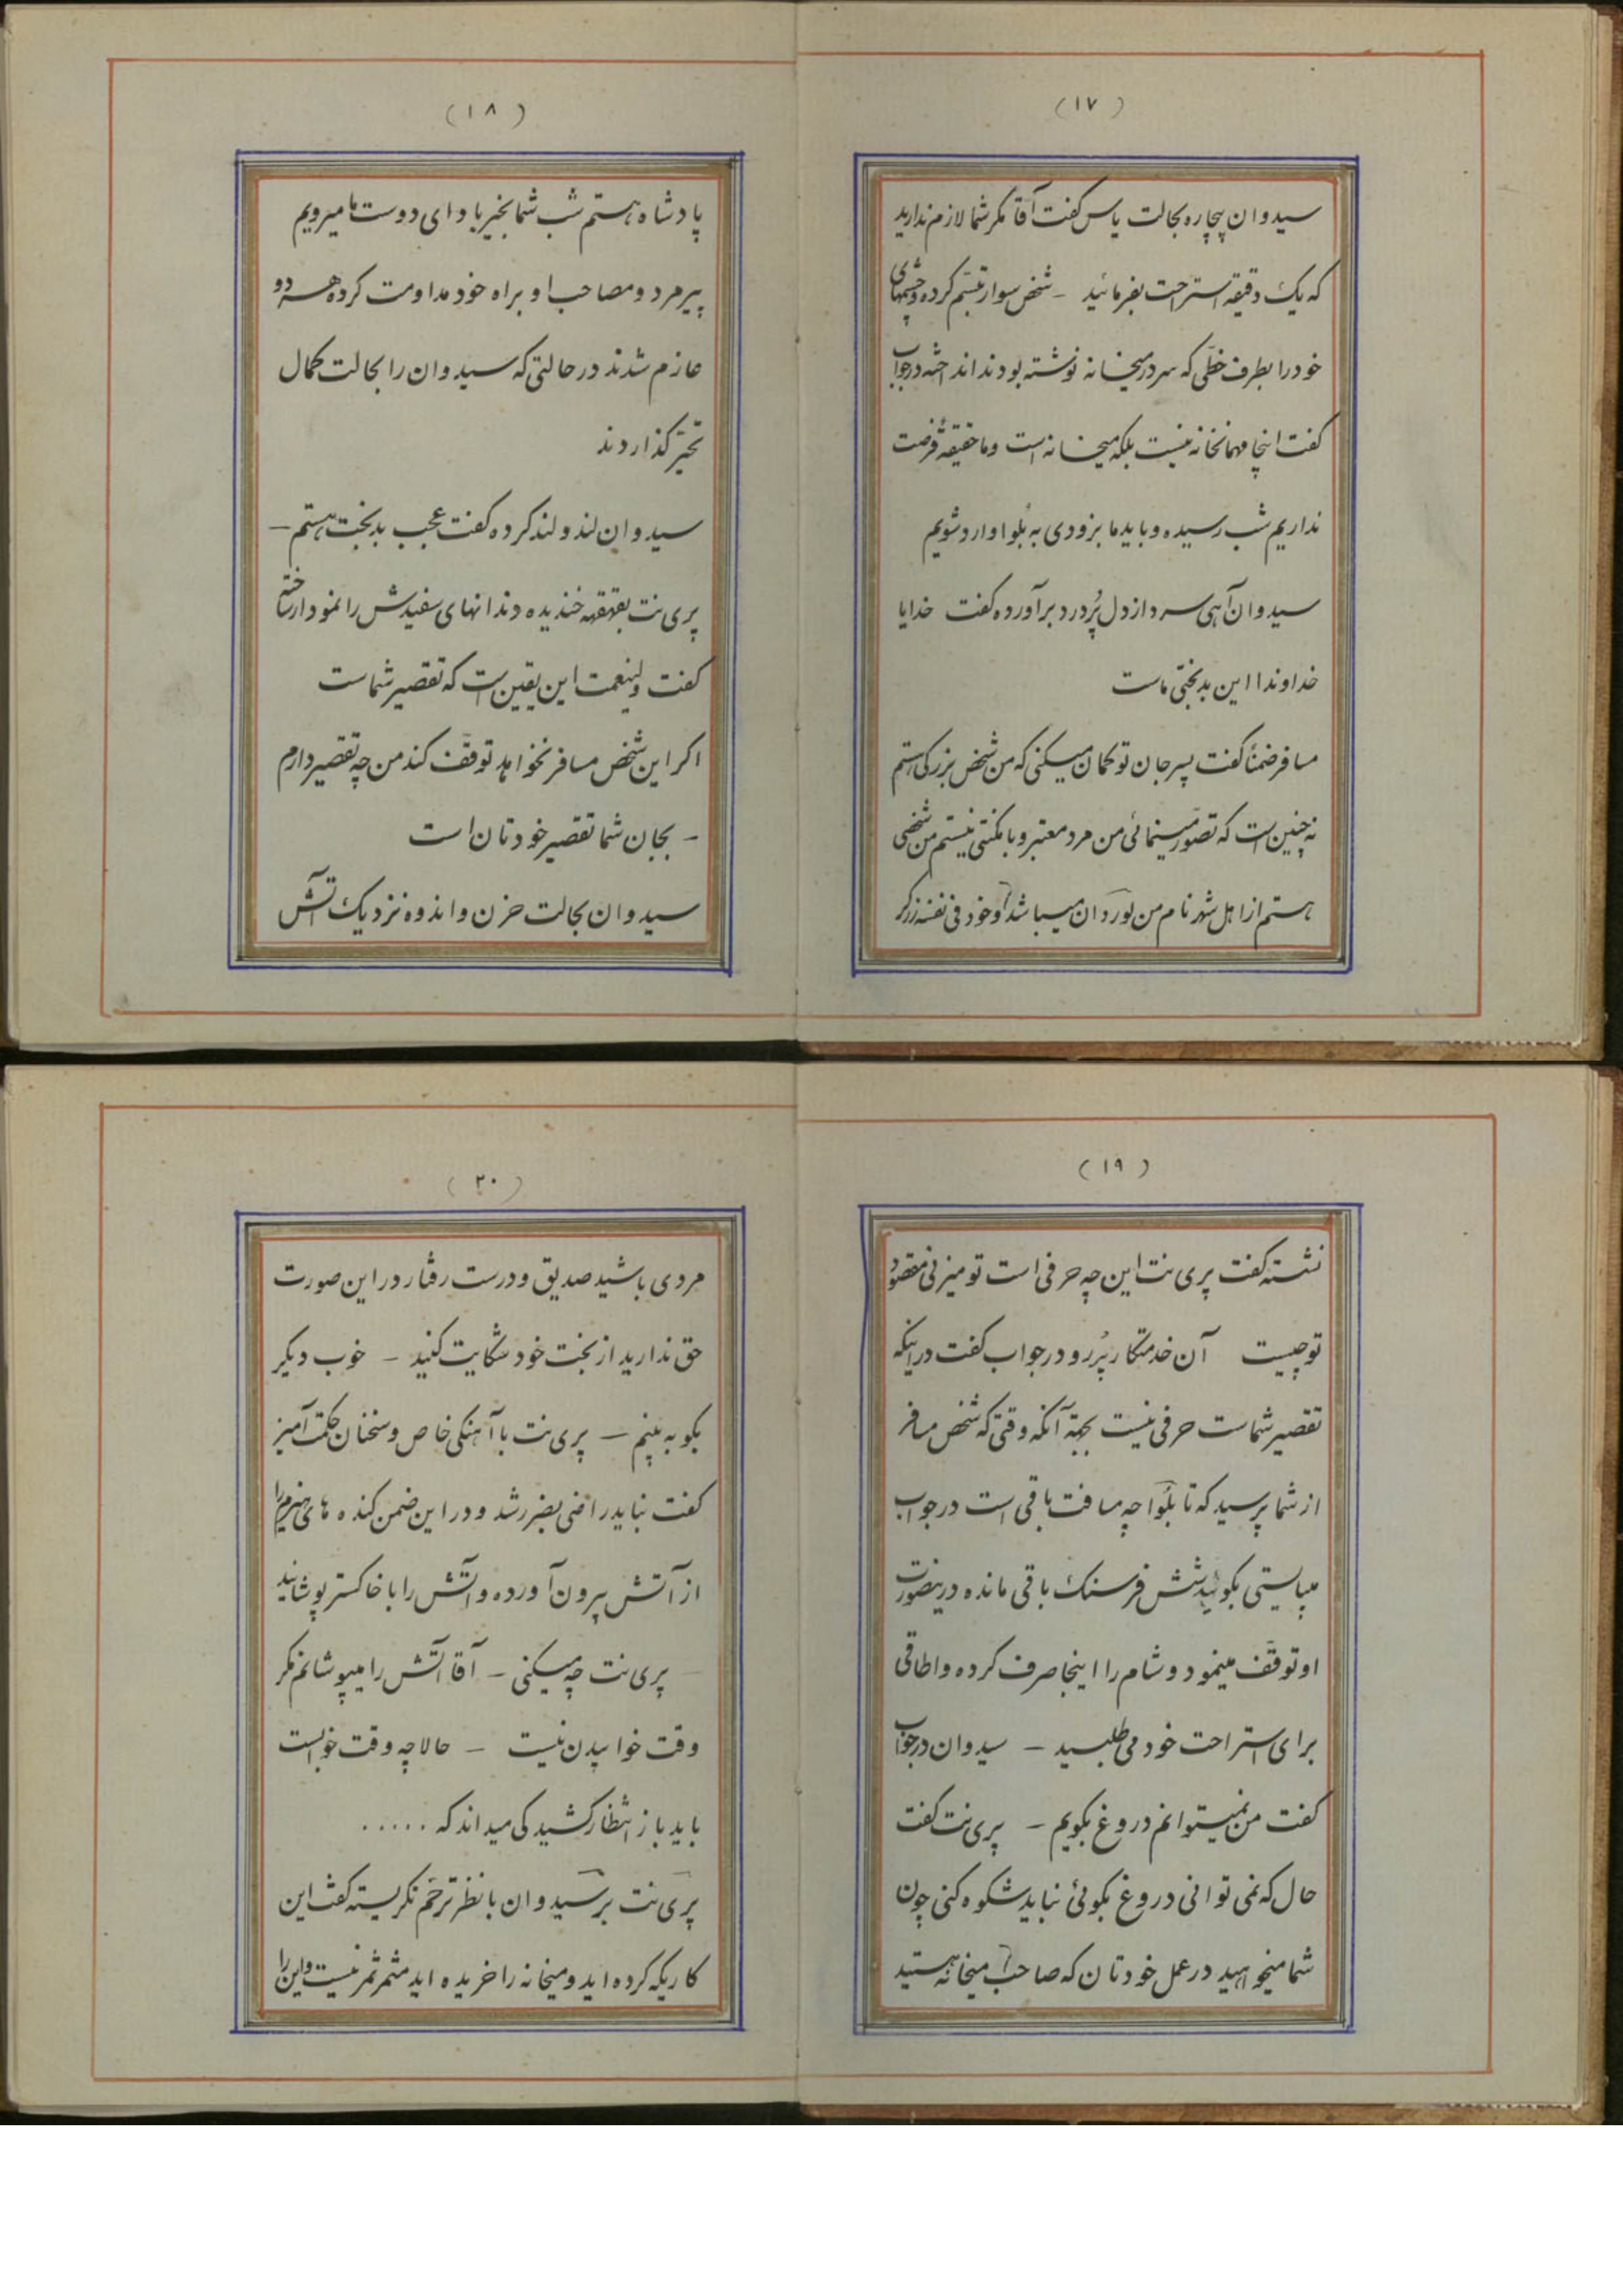 (۱۷)
سیدوان بیچاره بحالت یاس گفت آقا مگر شما لازم ندارید
که یک دقیقه استراحت بفرمائید - شخص سوار تبسّم کرده و چشمهای
خود را بطرف خطّی که سردر میخانه نوشته بودند انداخته در جواب
گفت اینجا مهمانخانه نیست بلکه میخانه است و ما حقیقةً فرصت
نداریم شب رسیده و باید ما بزودی به بُلوا وارد شویم
سیدوان آهی سرد از دل پُردرد برآورده گفت خدایا
خداوندا این بدبختی ماست
مسافر ضمناً گفت پسرجان تو گمان میکنی که من شخص بزرگی استم
نه چنین است که تصوّر مینمائی من مرد معتبر و با مکنتی نیستم من شخصی
هستم از اهل شهر نام من لوردان میباشد و خود فی نفسه زرگر
(۱۸)
پادشاه هستم شب شما بخیر باد ای دوست ما میرویم
پیرمرد و مصاحب او براه خود مداومت کرده هر دو
عازم شدند در حالتی که سیدوان را بحالت کمال
تحیّر گذاردند
سیدوان لند و لند کرده گفت عجب بدبخت هستم -
پری نت بقهقهه خندیده دندانهای سفیدش را نمودار ساخته
گفت ولینعمت این یقین است که تقصیر شماست
اگر این شخص مسافر نخواهد توقّف کند من چه تقصیر دارم
- بجان شما تقصیر خودتان است
سیدوان بحالت حزن و اندوه نزدیک آتش
(۱۹)
نشسته گفت پری نت این چه حرفی است تو میزنی مقصود
تو چیست آن خدمتکار پُررو در جواب گفت در اینکه
تقصیر شماست حرفی نیست بجهة آنکه وقتی که شخص مسافر
از شما پرسید که تا بلوا چه مسافت باقی است در جواب
میبایستی بگوئید شش فرسنگ باقی مانده در اینصورت
او توقّف مینمود و شام را اینجا صرف کرده و اطاقی
برای استراحت خود می طلبید - سیدوان در جواب
گفت من نمیتوانم دروغ بگویم - پری نت گفت
حال که نمی توانی دروغ بگوئی نباید شکوه کنی چون
شما میخواهید در عمل خودتان که صاحب میخانه هستید
(۲۰)
مردی باشید صدیق و درست رفتار در این صورت
حق ندارید از بخت خود شکایت کنید - خوب دیگر
بگو به بینم - پری نت با آهنگی خاص و سخنان حکمت آمیز
گفت نباید راضی بضرر شد و در این ضمن کنده های هیزم را
از آتش بیرون آورده و آتش را با خاکستر پوشانید
- پری نت چه میکنی - آقا آتش را میپوشانم مگر
وقت خوابیدن نیست - حالا چه وقت خوابست
باید باز انتظار کشید کی میداند که .....
پری نت بر سیدوان با نظر ترحّم نگریسته گفت این
کاریکه کرده اید و میخانه را خریده اید مثمر ثمر نیست و این را